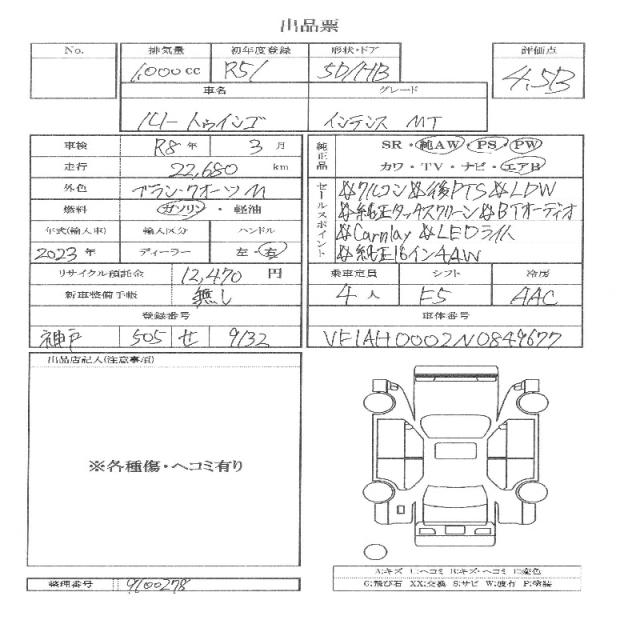 出品票
No. 排気量 初年度登録 形状・ドア 評価点
1,000 cc R5/ 5D/HB 4.5B
車名 グレード
ルノー トゥインゴ インテンス MT
車検 R8年 3月
走行 22,680 km
外色 ブラン・クオーツM
燃料 ガソリン ・ 軽油
年式(輸入車) 輸入区分 ハンドル
2023年 ディーラー 左・右
リサイクル預託金 12,470 円
新車整備手帳 無し
登録番号
神戸 505 せ 9132
純正品 SR・純AW・PS・PW
カワ・TV・ナビ・エアB
セールスポイント
☆クルコン☆後PTS☆LDW
☆純正タッチスクリーン☆BTオーディオ
☆Carplay ☆LEDライト
☆純正16インチAW
乗車定員 シフト 冷房
4人 F5 AAC
車体番号
VF1AH0002N0849677
出品店記入(注意事項)
※各種傷・ヘコミ有り
整理番号 9100278
A:キズ U:ヘコミ B:キズ・ヘコミ C:変色
G:飛び石 XX:交換 S:サビ W:波有 P:塗装